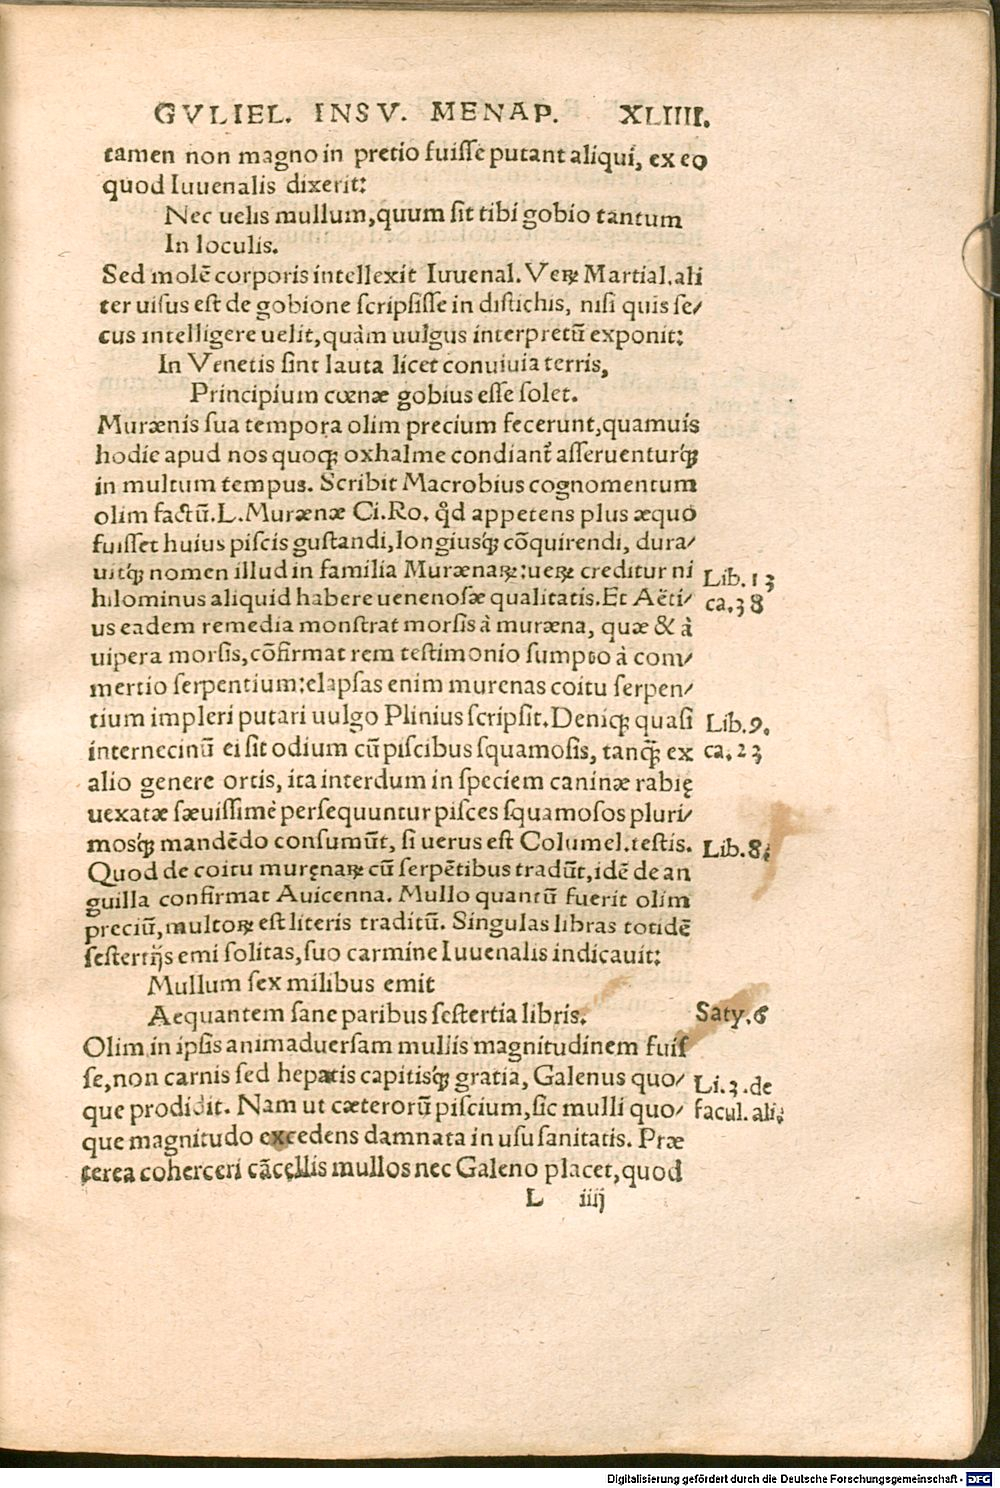 GVLIEL. INSV. MENAP. XLIIII.
tamen non magno in pretio fuiſſe putant aliqui, ex eo
quod Iuuenalis dixerit:
Nec uelis mullum, quum ſit tibi gobio tantum
In loculis.
Sed molẽ corporis intellexit Iuuenal. Veꝝ Martial. ali
ter uiſus eſt de gobione ſcripſiſſe in diſtichis, niſi quis ſe/
cus intelligere uelit, quàm uulgus interpretũ exponit:
In Venetis ſint lauta licet conuiuia terris,
Principium cœnæ gobius eſſe ſolet.
Murænis ſua tempora olim precium fecerunt, quamuis
hodie apud nos quoqꝫ oxhalme condiant᷑ aſſeruenturqꝫ
in multum tempus. Scribit Macrobius cognomentum
olim factũ. L. Murænæ Ci. Ro. qđ appetens plus æquo
fuiſſet huius piſcis guſtandi, longiusqꝫ cõquirendi, dura/
uitqꝫ nomen illud in familia Murænaꝝ: ueꝝ creditur ni
hilominus aliquid habere uenenoſæ qualitatis. Et Aëti/
Lib. 13
ca. 38
us eadem remedia monſtrat morſis à muræna, quæ & à
uipera morſis, cõfirmat rem teſtimonio ſumpto à com/
mertio ſerpentium: elapſas enim murenas coitu ſerpen/
tium impleri putari uulgo Plinius ſcripſit. Deniqꝫ quaſi
Lib. 9.
internecinũ ei ſit odium cũ piſcibus ſquamoſis, tanq̃ ex
ca. 23
alio genere ortis, ita interdum in ſpeciem caninæ rabię
uexatæ ſæuiſſimè perſequuntur piſces ſquamoſos pluri/
mosqꝫ mandẽdo conſumũt, ſi uerus eſt Columel. teſtis.
Lib. 8.
Quod de coitu muręnaꝝ cũ ſerpẽtibus tradũt, idẽ de an
guilla confirmat Auicenna. Mullo quantũ fuerit olim
preciũ, multoꝝ eſt literis traditũ. Singulas libras totidẽ
ſeſtertijs emi ſolitas, ſuo carmine Iuuenalis indicauit:
Mullum ſex milibus emit
Aequantem ſane paribus ſeſtertia libris.
Saty. 6
Olim in ipſis animaduerſam mullis magnitudinem fuiſ
ſe, non carnis ſed hepatis capitisqꝫ gratia, Galenus quo/
Li. 3. de
que prodidit. Nam ut cæterorũ piſcium, ſic mulli quo/
facul. ali.
que magnitudo excedens damnata in uſu ſanitatis. Præ
terea coherceri cãcellis mullos nec Galeno placet, quod
L iiij
Digitalisierung gefördert durch die Deutsche Forschungsgemeinschaft - DFG